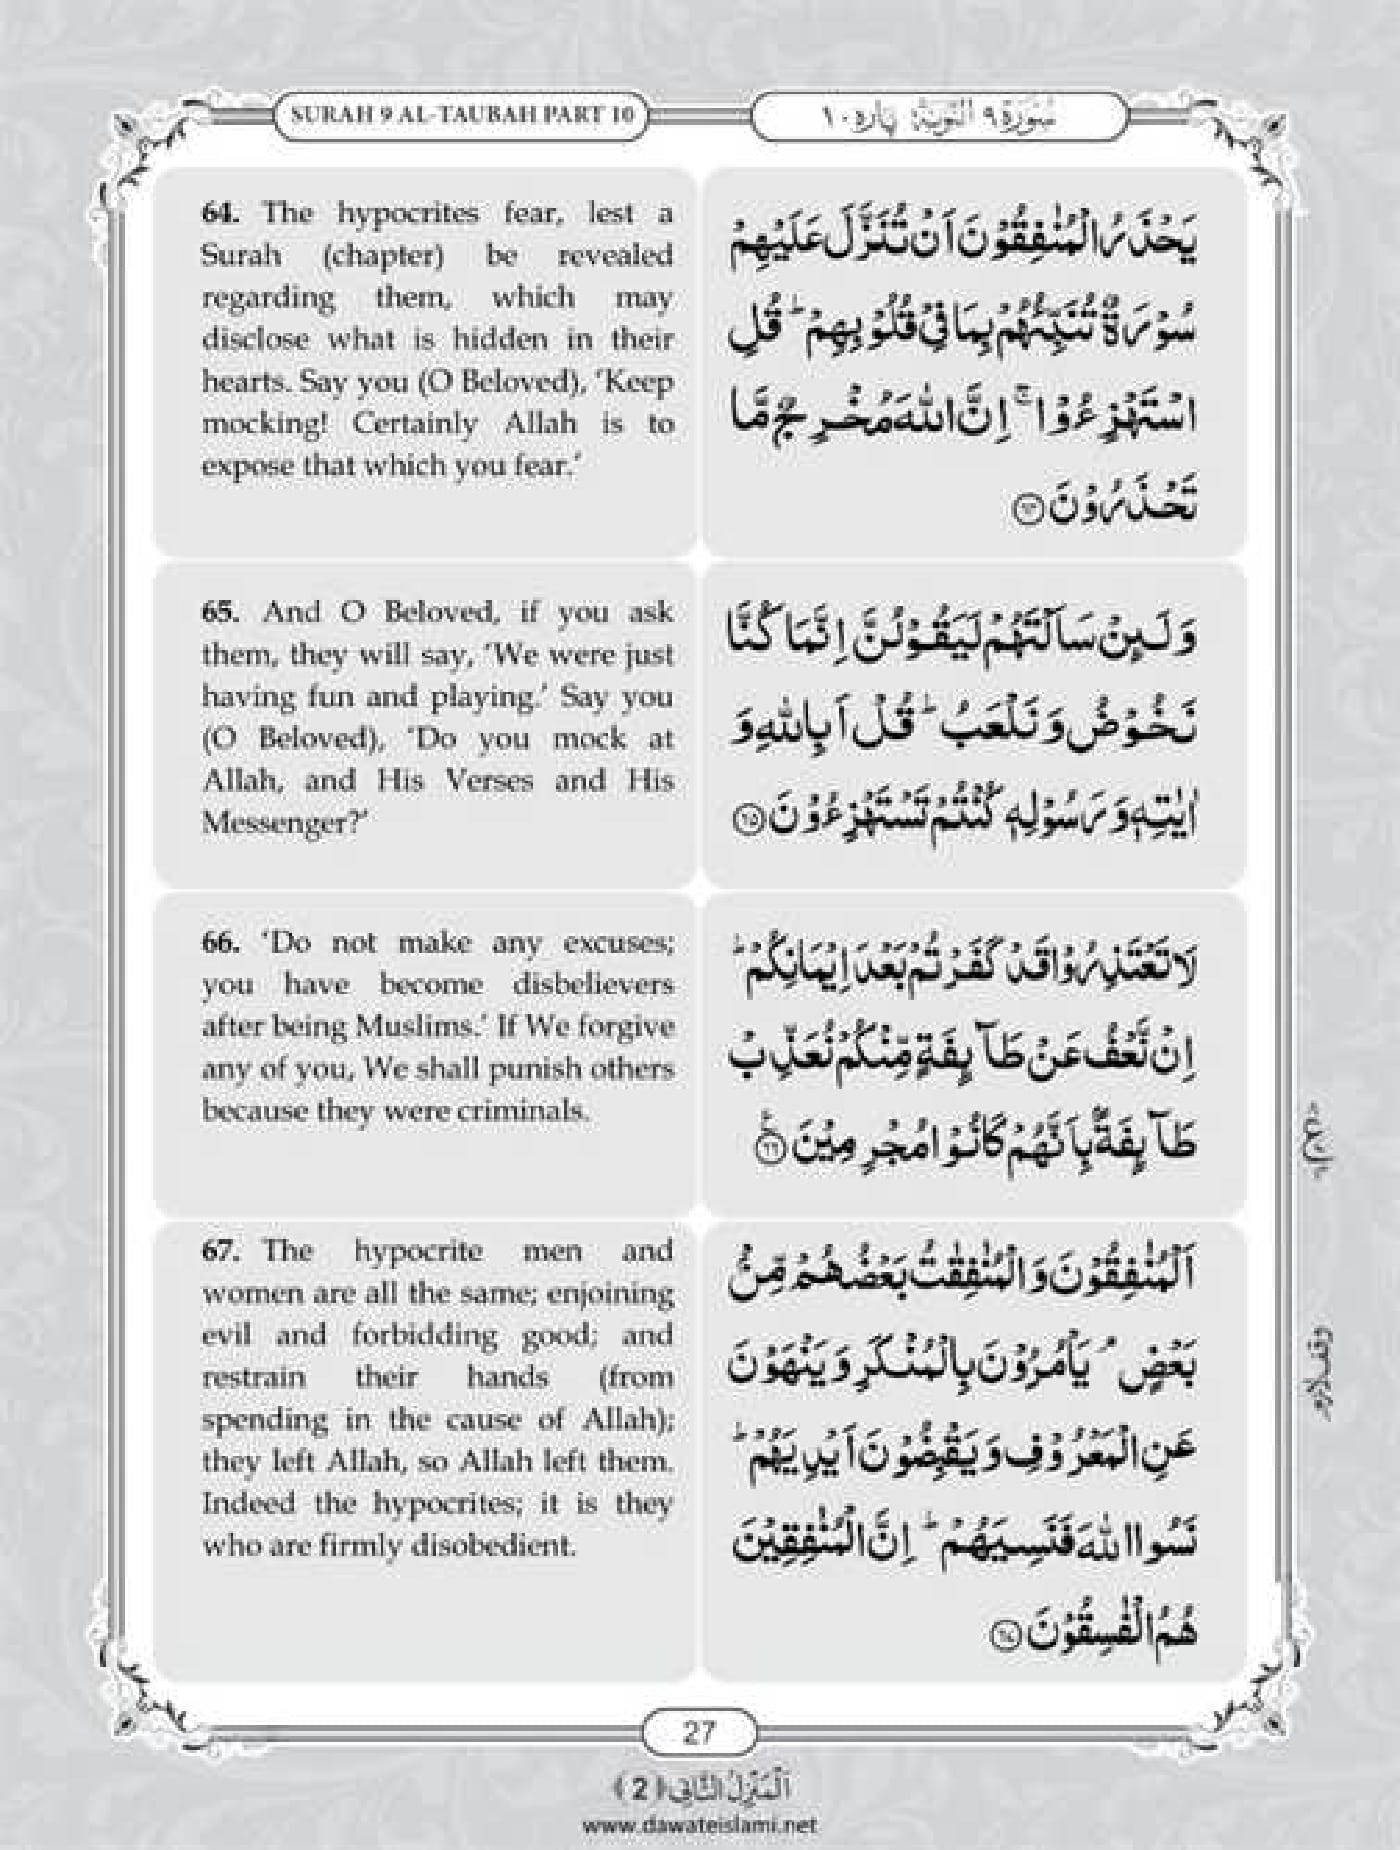 SURAH 9 AL-TAUBAH PART 10
سُوْرَةُ ٩ التَّوْبَةُ پارہ ١٠
64. The hypocrites fear, lest a
Surah (chapter) be revealed
regarding them, which may
disclose what is hidden in their
hearts. Say you (O Beloved), ‘Keep
mocking! Certainly Allah is to
expose that which you fear.’
یَحْذَرُ الْمُنٰفِقُوْنَ اَنْ تُنَزَّلَ عَلَیْهِمْ
سُوْرَةٌ تُنَبِّئُهُمْ بِمَا فِیْ قُلُوْبِهِمْ ؕ قُلِ
اسْتَهْزِءُوْا ۚ اِنَّ اللّٰهَ مُخْرِجٌ مَّا
تَحْذَرُوْنَ ﴿۶۴﴾
65. And O Beloved, if you ask
them, they will say, ‘We were just
having fun and playing.’ Say you
(O Beloved), ‘Do you mock at
Allah, and His Verses and His
Messenger?’
وَ لَىِٕنْ سَاَلْتَهُمْ لَیَقُوْلُنَّ اِنَّمَا كُنَّا
نَخُوْضُ وَ نَلْعَبُ ؕ قُلْ اَبِاللّٰهِ وَ
اٰیٰتِهٖ وَ رَسُوْلِهٖ كُنْتُمْ تَسْتَهْزِءُوْنَ ﴿۶۵﴾
66. ‘Do not make any excuses;
you have become disbelievers
after being Muslims.’ If We forgive
any of you, We shall punish others
because they were criminals.
لَا تَعْتَذِرُوْا قَدْ كَفَرْتُمْ بَعْدَ اِیْمَانِكُمْ ؕ
اِنْ نَّعْفُ عَنْ طَآىِٕفَةٍ مِّنْكُمْ نُعَذِّبْ
طَآىِٕفَةًۢ بِاَنَّهُمْ كَانُوْا مُجْرِمِیْنَ ﴿۶۶﴾ ع
67. The hypocrite men and
women are all the same; enjoining
evil and forbidding good; and
restrain their hands (from
spending in the cause of Allah);
they left Allah, so Allah left them.
Indeed the hypocrites; it is they
who are firmly disobedient.
اَلْمُنٰفِقُوْنَ وَ الْمُنٰفِقٰتُ بَعْضُهُمْ مِّنْۢ
بَعْضٍ ۘ یَاْمُرُوْنَ بِالْمُنْكَرِ وَ یَنْهَوْنَ
عَنِ الْمَعْرُوْفِ وَ یَقْبِضُوْنَ اَیْدِیَهُمْ ؕ
نَسُوا اللّٰهَ فَنَسِیَهُمْ ؕ اِنَّ الْمُنٰفِقِیْنَ
هُمُ الْفٰسِقُوْنَ ﴿۶۷﴾
وقف لازم
27
اَلْمَنْزِلُ الثَّانِی ﴿2﴾
www.dawateislami.net